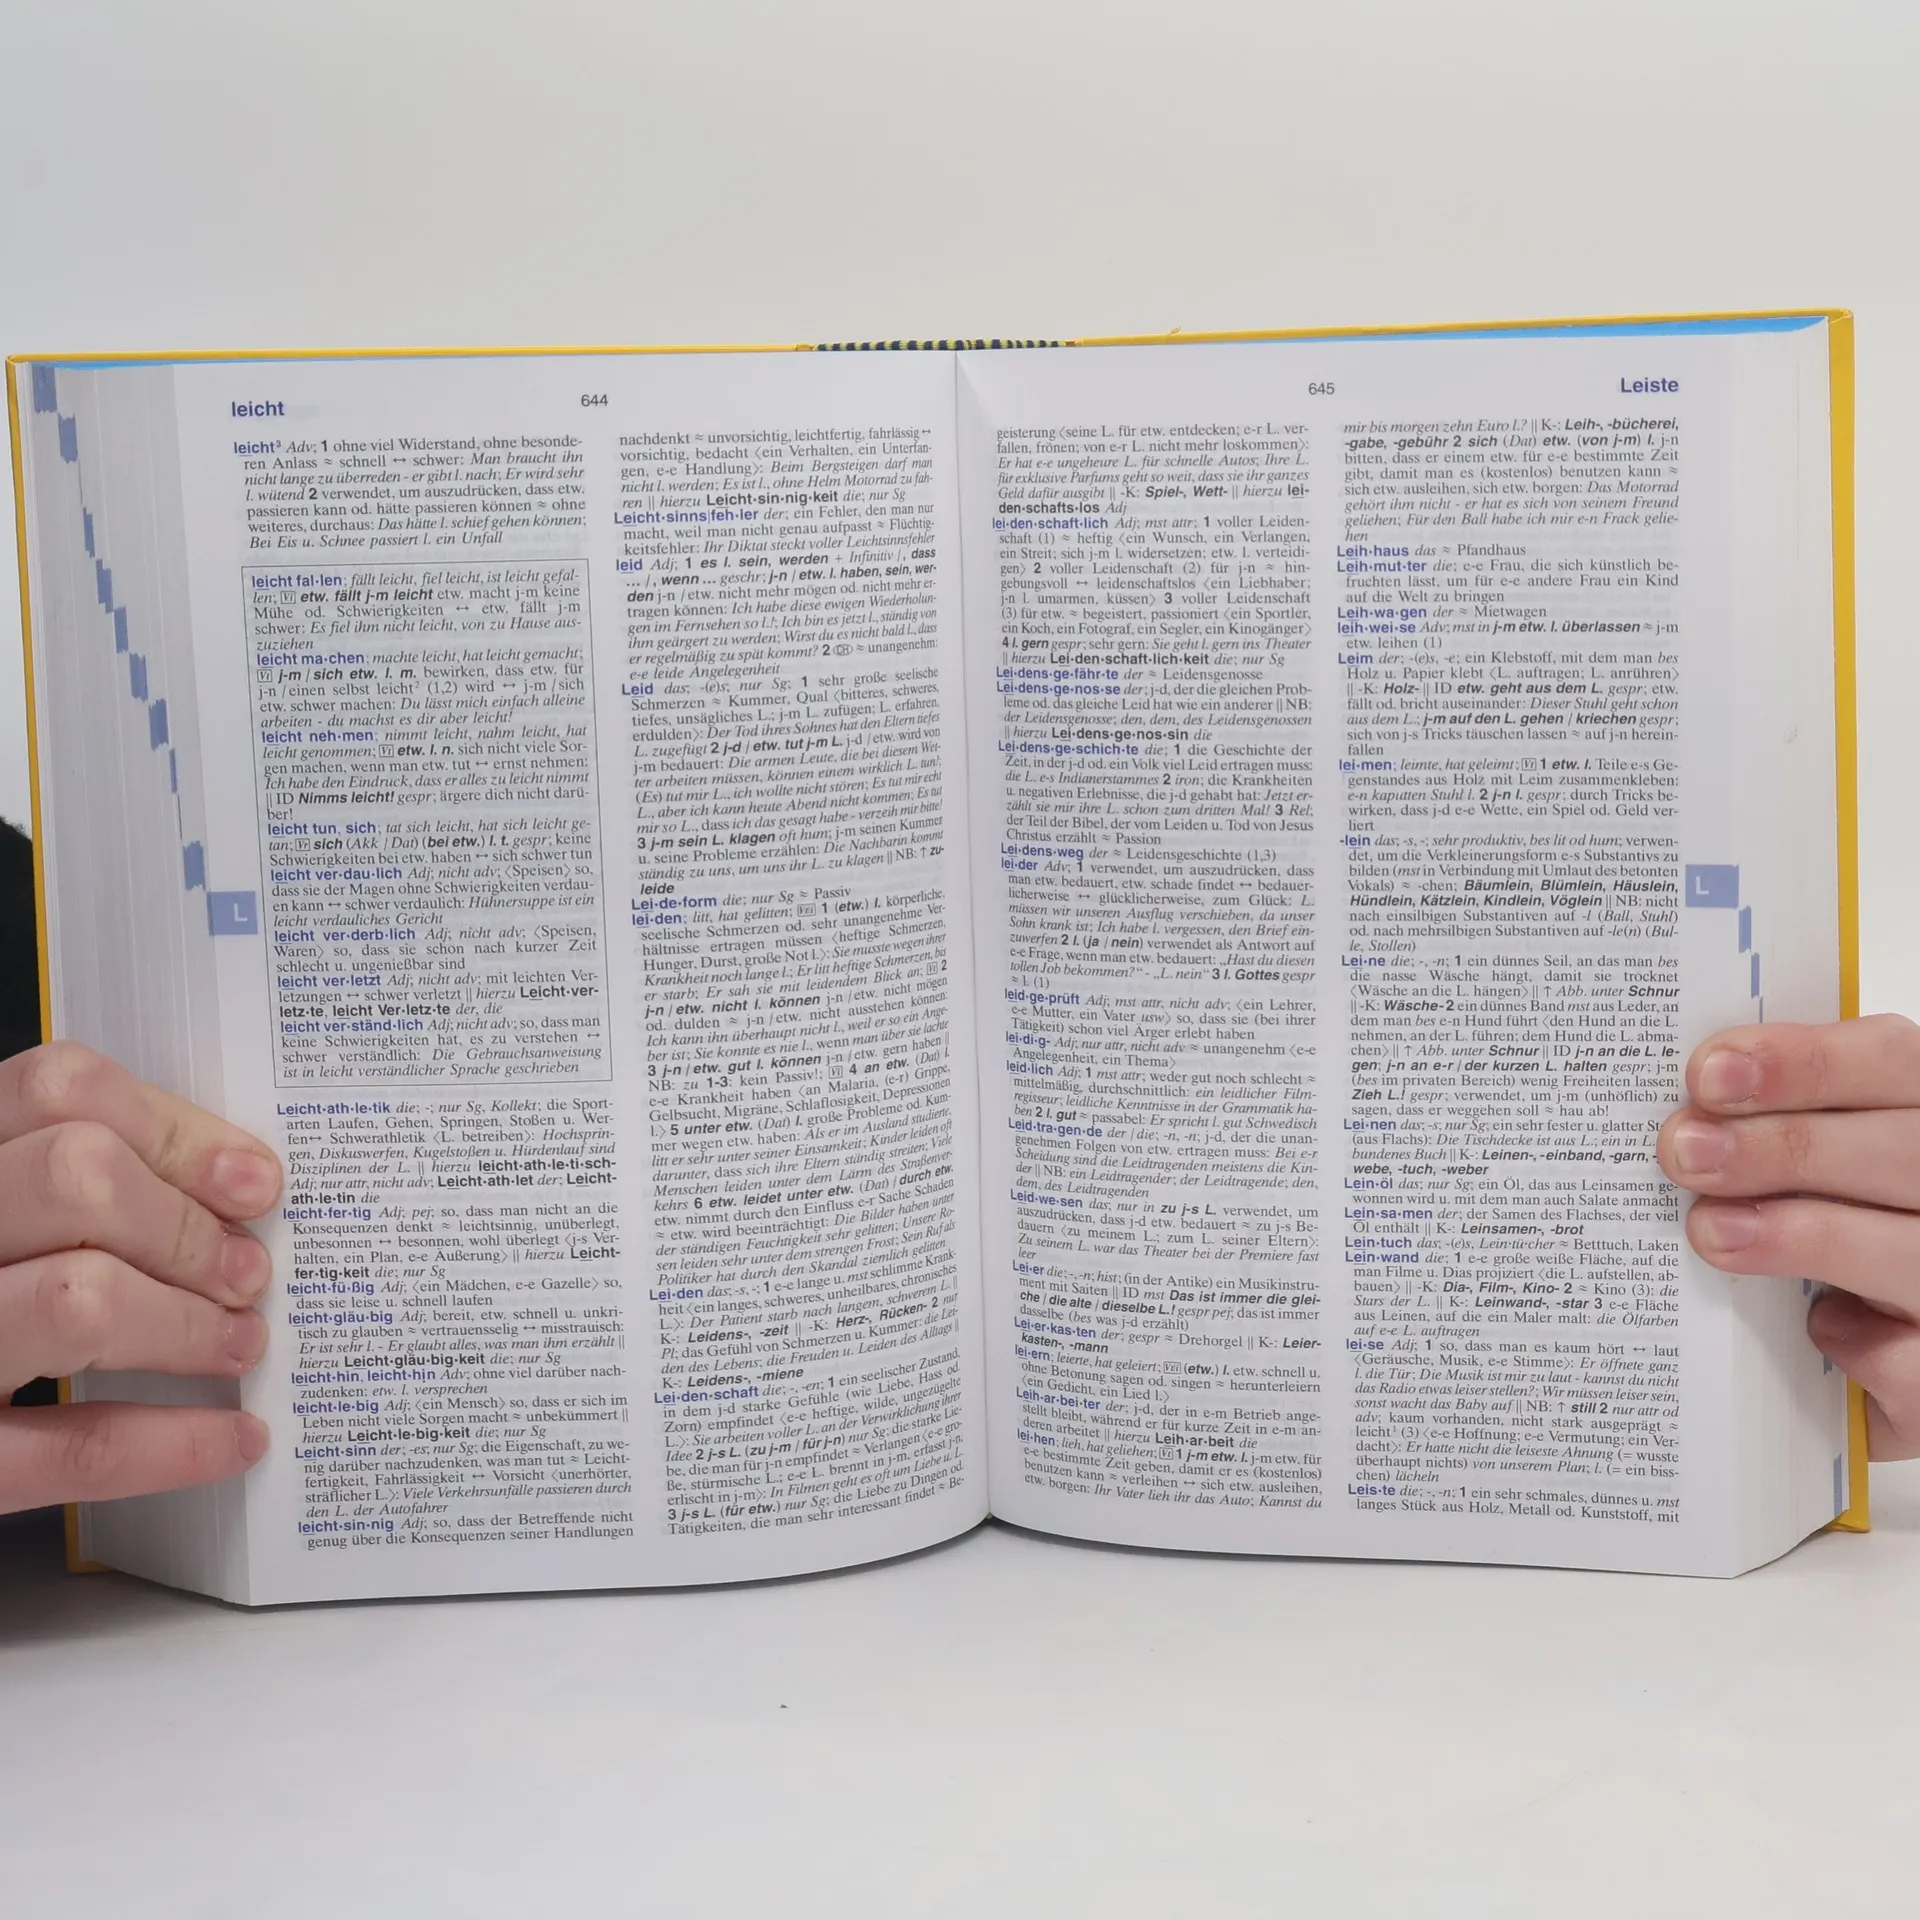 leicht
644
leicht³ Adv; 1 ohne viel Widerstand, ohne besonde-
ren Anlass ≈ schnell ↔ schwer: Man braucht ihn
nicht lange zu überreden - er gibt l. nach; Er wird sehr
l. wütend 2 verwendet, um auszudrücken, dass etw.
passieren kann od. hätte passieren können ≈ ohne
weiteres, durchaus: Das hätte l. schief gehen können;
Bei Eis u. Schnee passiert l. ein Unfall
leicht fal·len; fällt leicht, fiel leicht, ist leicht gefal-
len; [Vi] etw. fällt j-m leicht etw. macht j-m keine
Mühe od. Schwierigkeiten ↔ etw. fällt j-m
schwer: Es fiel ihm nicht leicht, von zu Hause aus-
zuziehen
leicht ma·chen; machte leicht, hat leicht gemacht;
[Vi] j-m / sich etw. l. m. bewirken, dass etw. für
j-n / einen selbst leicht² (1,2) wird ↔ j-m / sich
etw. schwer machen: Du lässt mich einfach alleine
arbeiten - du machst es dir aber leicht!
leicht neh·men; nimmt leicht, nahm leicht, hat
leicht genommen; [Vt] etw. l. n. sich nicht viele Sor-
gen machen, wenn man etw. tut ↔ ernst nehmen:
Ich habe den Eindruck, dass er alles zu leicht nimmt
|| ID Nimms leicht! gespr; ärgere dich nicht darü-
ber!
leicht tun, sich; tat sich leicht, hat sich leicht ge-
tan; [Vr] sich (Akk / Dat) (bei etw.) l. t. gespr; keine
Schwierigkeiten bei etw. haben ↔ sich schwer tun
leicht ver·dau·lich Adj; nicht adv; ⟨Speisen⟩ so,
dass sie der Magen ohne Schwierigkeiten verdau-
en kann ↔ schwer verdaulich: Hühnersuppe ist ein
leicht verdauliches Gericht
leicht ver·derb·lich Adj; nicht adv; ⟨Speisen,
Waren⟩ so, dass sie schon nach kurzer Zeit
schlecht u. ungenießbar sind
leicht ver·letzt Adj; nicht adv; mit leichten Ver-
letzungen ↔ schwer verletzt || hierzu Leicht·ver-
letz·te, leicht Ver·letz·te der, die
leicht ver·ständ·lich Adj; nicht adv; so, dass man
keine Schwierigkeiten hat, es zu verstehen ↔
schwer verständlich: Die Gebrauchsanweisung
ist in leicht verständlicher Sprache geschrieben
Leicht·ath·le·tik die; -; nur Sg, Kollekt; die Sport-
arten Laufen, Gehen, Springen, Stoßen u. Wer-
fen ↔ Schwerathletik ⟨L. betreiben⟩: Hochsprin-
gen, Diskuswerfen, Kugelstoßen u. Hürdenlauf sind
Disziplinen der L. || hierzu leicht·ath·le·ti·sch-
Adj; nur attr, nicht adv; Leicht·ath·let der; Leicht-
ath·le·tin die
leicht·fer·tig Adj; pej; so, dass man nicht an die
Konsequenzen denkt ≈ leichtsinnig, unüberlegt,
unbesonnen ↔ besonnen, wohl überlegt ⟨j-s Ver-
halten, ein Plan, e-e Äußerung⟩ || hierzu Leicht-
fer·tig·keit die; nur Sg
leicht·fü·ßig Adj; ⟨ein Mädchen, e-e Gazelle⟩ so,
dass sie leise u. schnell laufen
leicht·gläu·big Adj; bereit, etw. schnell u. unkri-
tisch zu glauben ≈ vertrauensselig ↔ misstrauisch:
Er ist sehr l. - Er glaubt alles, was man ihm erzählt ||
hierzu Leicht·gläu·big·keit die; nur Sg
leicht·hin, leicht·hin Adv; ohne viel darüber nach-
zudenken: etw. l. versprechen
leicht·le·big Adj; ⟨ein Mensch⟩ so, dass er sich im
Leben nicht viele Sorgen macht ≈ unbekümmert ||
hierzu Leicht·le·big·keit die; nur Sg
Leicht·sinn der; -es; nur Sg; die Eigenschaft, zu we-
nig darüber nachzudenken, was man tut ≈ Leicht-
fertigkeit, Fahrlässigkeit ↔ Vorsicht ⟨unerhörter,
sträflicher L.⟩: Viele Verkehrsunfälle passieren durch
den L. der Autofahrer
leicht·sin·nig Adj; so, dass der Betreffende nicht
genug über die Konsequenzen seiner Handlungen
nachdenkt ≈ unvorsichtig, leichtfertig, fahrlässig ↔
vorsichtig, bedacht ⟨ein Verhalten, ein Unterfan-
gen, e-e Handlung⟩: Beim Bergsteigen darf man
nicht l. werden; Es ist l., ohne Helm Motorrad zu fah-
ren || hierzu Leicht·sin·nig·keit die; nur Sg
Leicht·sinns|feh·ler der; ein Fehler, den man nur
macht, weil man nicht genau aufpasst ≈ Flüchtig-
keitsfehler: Ihr Diktat steckt voller Leichtsinnsfehler
leid Adj; 1 es l. sein, werden + Infinitiv /, dass
... /, wenn ... geschr; j-n / etw. l. haben, sein, wer-
den j-n / etw. nicht mehr mögen od. nicht mehr er-
tragen können: Ich habe diese ewigen Wiederholun-
gen im Fernsehen so l.!; Ich bin es jetzt l., ständig von
ihm geärgert zu werden; Wirst du es nicht bald l., dass
er regelmäßig zu spät kommt? 2 CH ≈ unangenehm:
e-e leide Angelegenheit
Leid das; -(e)s; nur Sg; 1 sehr große seelische
Schmerzen ≈ Kummer, Qual ⟨bitteres, schweres,
tiefes, unsägliches L.; j-m L. zufügen; L. erfahren,
erdulden⟩: Der Tod ihres Sohnes hat den Eltern tiefes
L. zugefügt 2 j-d / etw. tut j-m L. j-d / etw. wird von
j-m bedauert: Die armen Leute, die bei diesem Wet-
ter arbeiten müssen, können einem wirklich L. tun!;
(Es) tut mir L., ich wollte nicht stören; Es tut mir echt
L., aber ich kann heute Abend nicht kommen; Es tut
mir so L., dass ich das gesagt habe - verzeih mir bitte!
3 j-m sein L. klagen oft hum; j-m seinen Kummer
u. seine Probleme erzählen: Die Nachbarin kommt
ständig zu uns, um uns ihr L. zu klagen || NB: ↑ zu-
leide
Lei·de·form die; nur Sg ≈ Passiv
lei·den; litt, hat gelitten; [Vt/i] 1 (etw.) l. körperliche,
seelische Schmerzen od. sehr unangenehme Ver-
hältnisse ertragen müssen ⟨heftige Schmerzen,
Hunger, Durst, große Not l.⟩: Sie musste wegen ihrer
Krankheit noch lange l.; Er litt heftige Schmerzen, bis
er starb; Er sah sie mit leidendem Blick an; [Vt] 2
j-n / etw. nicht l. können j-n / etw. nicht mögen
od. dulden ≈ j-n / etw. nicht ausstehen können:
Ich kann ihn überhaupt nicht l., weil er so ein Ange-
ber ist; Sie konnte es nie l., wenn man über sie lachte
3 j-n / etw. gut l. können j-n / etw. gern haben ||
NB: zu 1-3: kein Passiv!; [Vi] 4 an etw. (Dat) l.
e-e Krankheit haben ⟨an Malaria, (e-r) Grippe,
Gelbsucht, Migräne, Schlaflosigkeit, Depressionen
l.⟩ 5 unter etw. (Dat) l. große Probleme od. Kum-
mer wegen etw. haben: Als er im Ausland studierte,
litt er sehr unter seiner Einsamkeit; Kinder leiden oft
darunter, dass sich ihre Eltern ständig streiten; Viele
Menschen leiden unter dem Lärm des Straßenver-
kehrs 6 etw. leidet unter etw. (Dat) / durch etw.
etw. nimmt durch den Einfluss e-r Sache Schaden
≈ etw. wird beeinträchtigt: Die Bilder haben unter
der ständigen Feuchtigkeit sehr gelitten; Unsere Ro-
sen leiden sehr unter dem strengen Frost; Sein Ruf als
Politiker hat durch den Skandal ziemlich gelitten
Lei·den das; -s, -; 1 e-e lange u. mst schlimme Krank-
heit ⟨ein langes, schweres, unheilbares, chronisches
L.⟩: Der Patient starb nach langem, schwerem L. ||
K-: Leidens-, -zeit || -K: Herz-, Rücken- 2 nur
Pl; das Gefühl von Schmerzen u. Kummer: die Lei-
den des Lebens; die Freuden u. Leiden des Alltags ||
K-: Leidens-, -miene
Lei·den·schaft die; -, -en; 1 ein seelischer Zustand,
in dem j-d starke Gefühle (wie Liebe, Hass od.
Zorn) empfindet ⟨e-e heftige, wilde, ungezügelte
L.⟩: Sie arbeiten voller L. an der Verwirklichung ihrer
Idee 2 j-s L. (zu j-m / für j-n) nur Sg; die starke Lie-
be, die man für j-n empfindet ≈ Verlangen ⟨e-e gro-
ße, stürmische L.; e-e L. brennt in j-m, erfasst j-n,
erlischt in j-m⟩: In Filmen geht es oft um Liebe u. L.
3 j-s L. (für etw.) nur Sg; die Liebe zu Dingen od.
Tätigkeiten, die man sehr interessant findet ≈ Be-
L
645
Leiste
geisterung ⟨seine L. für etw. entdecken; e-r L. ver-
fallen, frönen; von e-r L. nicht mehr loskommen⟩:
Er hat e-e ungeheure L. für schnelle Autos; Ihre L.
für exklusive Parfums geht so weit, dass sie ihr ganzes
Geld dafür ausgibt || -K: Spiel-, Wett- || hierzu lei-
den·schafts·los Adj
lei·den·schaft·lich Adj; mst attr; 1 voller Leiden-
schaft (1) ≈ heftig ⟨ein Wunsch, ein Verlangen,
ein Streit; sich j-m l. widersetzen; etw. l. verteidi-
gen⟩ 2 voller Leidenschaft (2) für j-n ≈ hin-
gebungsvoll ↔ leidenschaftslos ⟨ein Liebhaber;
j-n l. umarmen, küssen⟩ 3 voller Leidenschaft
(3) für etw. ≈ begeistert, passioniert ⟨ein Sportler,
ein Koch, ein Fotograf, ein Segler, ein Kinogänger⟩
4 l. gern gespr; sehr gern: Sie geht l. gern ins Theater
|| hierzu Lei·den·schaft·lich·keit die; nur Sg
Lei·dens·ge·fähr·te der ≈ Leidensgenosse
Lei·dens·ge·nos·se der; j-d, der die gleichen Prob-
leme od. das gleiche Leid hat wie ein anderer || NB:
der Leidensgenosse; den, dem, des Leidensgenossen
|| hierzu Lei·dens·ge·nos·sin die
Lei·dens·ge·schich·te die; 1 die Geschichte der
Zeit, in der j-d od. ein Volk viel Leid ertragen muss:
die L. e-s Indianerstammes 2 iron; die Krankheiten
u. negativen Erlebnisse, die j-d gehabt hat: Jetzt er-
zählt sie mir ihre L. schon zum dritten Mal! 3 Rel;
der Teil der Bibel, der vom Leiden u. Tod von Jesus
Christus erzählt ≈ Passion
Lei·dens·weg der ≈ Leidensgeschichte (1,3)
lei·der Adv; 1 verwendet, um auszudrücken, dass
man etw. bedauert, etw. schade findet ↔ bedauer-
licherweise ↔ glücklicherweise, zum Glück: L.
müssen wir unseren Ausflug verschieben, da unser
Sohn krank ist; Ich habe l. vergessen, den Brief ein-
zuwerfen 2 l. (ja / nein) verwendet als Antwort auf
e-e Frage, wenn man etw. bedauert: „Hast du diesen
tollen Job bekommen?“ - „L. nein“ 3 l. Gottes gespr
≈ l. (1)
leid·ge·prüft Adj; mst attr, nicht adv; ⟨ein Lehrer,
e-e Mutter, ein Vater usw⟩ so, dass sie (bei ihrer
Tätigkeit) schon viel Ärger erlebt haben
lei·di·g- Adj; nur attr, nicht adv ≈ unangenehm ⟨e-e
Angelegenheit, ein Thema⟩
leid·lich Adj; 1 mst attr; weder gut noch schlecht ≈
mittelmäßig, durchschnittlich: ein leidlicher Film-
regisseur; leidliche Kenntnisse in der Grammatik ha-
ben 2 l. gut ≈ passabel: Er spricht l. gut Schwedisch
Leid·tra·gen·de der / die; -n, -n; j-d, der die unan-
genehmen Folgen von etw. ertragen muss: Bei e-r
Scheidung sind die Leidtragenden meistens die Kin-
der || NB: ein Leidtragender; der Leidtragende; den,
dem, des Leidtragenden
Leid·we·sen das; nur in zu j-s L. verwendet, um
auszudrücken, dass j-d etw. bedauert ≈ zu j-s Be-
dauern ⟨zu meinem L.; zum L. seiner Eltern⟩:
Zu seinem L. war das Theater bei der Premiere fast
leer
Lei·er die; -, -n; hist; (in der Antike) ein Musikinstru-
ment mit Saiten || ID mst Das ist immer die glei-
che / die alte / dieselbe L.! gespr pej; das ist immer
dasselbe (bes was j-d erzählt)
Lei·er·kas·ten der; gespr ≈ Drehorgel || K-: Leier-
kasten-, -mann
lei·ern; leierte, hat geleiert; [Vt/i] (etw.) l. etw. schnell u.
ohne Betonung sagen od. singen ≈ herunterleiern
⟨ein Gedicht, ein Lied l.⟩
Leih·ar·bei·ter der; j-d, der in e-m Betrieb ange-
stellt bleibt, während er für kurze Zeit in e-m an-
deren arbeitet || hierzu Leih·ar·beit die
lei·hen; lieh, hat geliehen; [Vt] 1 j-m etw. l. j-m etw. für
e-e bestimmte Zeit geben, damit er es (kostenlos)
benutzen kann ≈ verleihen ↔ sich etw. ausleihen,
etw. borgen: Ihr Vater lieh ihr das Auto; Kannst du
mir bis morgen zehn Euro l.? || K-: Leih-, -bücherei,
-gabe, -gebühr 2 sich (Dat) etw. (von j-m) l. j-n
bitten, dass er einem etw. für e-e bestimmte Zeit
gibt, damit man es (kostenlos) benutzen kann ≈
sich etw. ausleihen, sich etw. borgen: Das Motorrad
gehört ihm nicht - er hat es sich von seinem Freund
geliehen; Für den Ball habe ich mir e-n Frack gelie-
hen
Leih·haus das ≈ Pfandhaus
Leih·mut·ter die; e-e Frau, die sich künstlich be-
fruchten lässt, um für e-e andere Frau ein Kind
auf die Welt zu bringen
Leih·wa·gen der ≈ Mietwagen
leih·wei·se Adv; mst in j-m etw. l. überlassen ≈ j-m
etw. leihen (1)
Leim der; -(e)s, -e; ein Klebstoff, mit dem man bes
Holz u. Papier klebt ⟨L. auftragen; L. anrühren⟩
|| -K: Holz- || ID etw. geht aus dem L. gespr; etw.
fällt od. bricht auseinander: Dieser Stuhl geht schon
aus dem L.; j-m auf den L. gehen / kriechen gespr;
sich von j-s Tricks täuschen lassen ≈ auf j-n herein-
fallen
lei·men; leimte, hat geleimt; [Vt] 1 etw. l. Teile e-s Ge-
genstandes aus Holz mit Leim zusammenkleben:
e-n kaputten Stuhl l. 2 j-n l. gespr; durch Tricks be-
wirken, dass j-d e-e Wette, ein Spiel od. Geld ver-
liert
-lein das; -s, -; sehr produktiv, bes lit od hum; verwen-
det, um die Verkleinerungsform e-s Substantivs zu
bilden (mst in Verbindung mit Umlaut des betonten
Vokals) ≈ -chen; Bäumlein, Blümlein, Häuslein,
Hündlein, Kätzlein, Kindlein, Vöglein || NB: nicht
nach einsilbigen Substantiven auf -l (Ball, Stuhl)
od. nach mehrsilbigen Substantiven auf -le(n) (Bul-
le, Stollen)
Lei·ne die; -, -n; 1 ein dünnes Seil, an das man bes
die nasse Wäsche hängt, damit sie trocknet
⟨Wäsche an die L. hängen⟩ || ↑ Abb. unter Schnur
|| -K: Wäsche- 2 ein dünnes Band mst aus Leder, an
dem man bes e-n Hund führt ⟨den Hund an die L.
nehmen, an der L. führen; dem Hund die L. abma-
chen⟩ || ↑ Abb. unter Schnur || ID j-n an die L. le-
gen; j-n an e-r / der kurzen L. halten gespr; j-m
(bes im privaten Bereich) wenig Freiheiten lassen;
Zieh L.! gespr; verwendet, um j-m (unhöflich) zu
sagen, dass er weggehen soll ≈ hau ab!
Lei·nen das; -s; nur Sg; ein sehr fester u. glatter St
(aus Flachs): Die Tischdecke ist aus L.; ein in L.
bundenes Buch || K-: Leinen-, -einband, -garn, -
webe, -tuch, -weber
Lein·öl das; nur Sg; ein Öl, das aus Leinsamen ge-
wonnen wird u. mit dem man auch Salate anmacht
Lein·sa·men der; der Samen des Flachses, der viel
Öl enthält || K-: Leinsamen-, -brot
Lein·tuch das; -(e)s, Lein·tü·cher ≈ Betttuch, Laken
Lein·wand die; 1 e-e große weiße Fläche, auf die
man Filme u. Dias projiziert ⟨die L. aufstellen, ab-
bauen⟩ || -K: Dia-, Film-, Kino- 2 ≈ Kino (3): die
Stars der L. || K-: Leinwand-, -star 3 e-e Fläche
aus Leinen, auf die ein Maler malt: die Ölfarben
auf e-e L. auftragen
lei·se Adj; 1 so, dass man es kaum hört ↔ laut
⟨Geräusche, Musik, e-e Stimme⟩: Er öffnete ganz
l. die Tür; Die Musik ist mir zu laut - kannst du nicht
das Radio etwas leiser stellen?; Wir müssen leiser sein,
sonst wacht das Baby auf || NB: ↑ still 2 nur attr od
adv; kaum vorhanden, nicht stark ausgeprägt ≈
leicht¹ (3) ⟨e-e Hoffnung; e-e Vermutung; ein Ver-
dacht⟩: Er hatte nicht die leiseste Ahnung (= wusste
überhaupt nichts) von unserem Plan; l. (= ein biss-
chen) lächeln
Leis·te die; -, -n; 1 ein sehr schmales, dünnes u. mst
langes Stück aus Holz, Metall od. Kunststoff, mit
L